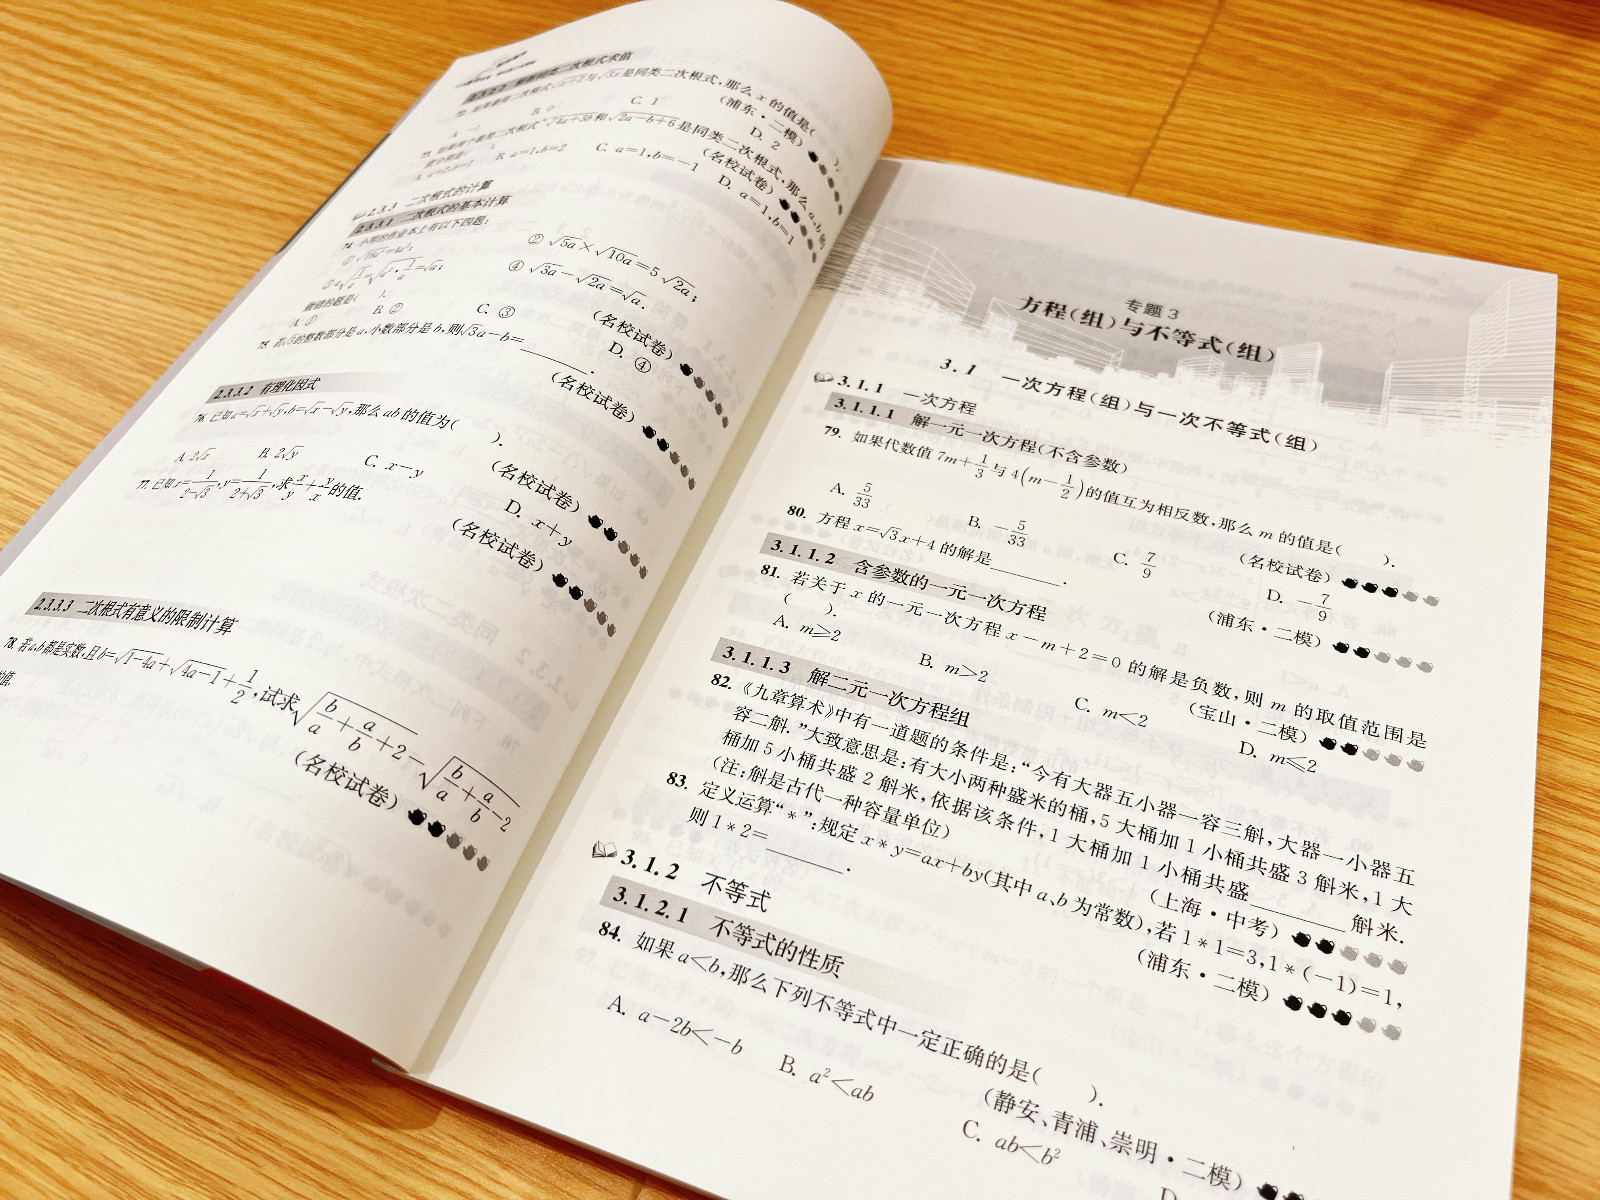 2.3.2.2 二次根式求值
是同类二次根式,那么 x 的值是( ).
(浦东·二模)
C. 1 D. 2
和√(2a−b+6)是同类二次根式,那么 a、b 的
(名校试卷)
B. a=1,b=2 C. a=1,b=−1 D. a=1,b=1
2.3.3 二次根式的计算
2.3.3.1 二次根式的基本计算
74. 小明的作业本上有以下四题:
② √5a×√10a=5√2a;
④ √3a−√2a=√a.
做错的题是( ). (名校试卷)
A. ① B. ② C. ③ D. ④
75. 若√3的整数部分是 a,小数部分是 b,则√3a−b=______.
(名校试卷)
2.3.3.2 有理化因式
76. 已知a=√x+√y,b=√x−√y,那么 ab 的值为( ).
(名校试卷)
A. 2√x B. 2√y C. x−y D. x+y
77. 已知x=1/(2−√3),y=1/(2+√3),求x/y+y/x的值.
(名校试卷)
2.3.3.3 二次根式有意义的限制计算
78. 若a,b都是实数,且b=√(1−4a)+√(4a−1)+1/2,试求√(b/a+a/b+2)−√(b/a+a/b−2)
值.
(名校试卷)
专题 3
方程(组)与不等式(组)
3.1 一次方程(组)与一次不等式(组)
3.1.1 一次方程
3.1.1.1 解一元一次方程(不含参数)
79. 如果代数值 7m+1/3 与 4(m−1/2)的值互为相反数,那么 m 的值是( ).
(名校试卷)
A. 5/33 B. −5/33 C. 7/9 D. −7/9
80. 方程 x=√3x+4 的解是______.
(浦东·二模)
3.1.1.2 含参数的一元一次方程
81. 若关于 x 的一元一次方程 x−m+2=0 的解是负数,则 m 的取值范围是
( ). (宝山·二模)
A. m≥2 B. m>2 C. m<2 D. m≤2
3.1.1.3 解二元一次方程组
82. 《九章算术》中有一道题的条件是:“今有大器五小器一容三斛,大器一小器五
容二斛.”大致意思是:有大小两种盛米的桶,5 大桶加 1 小桶共盛 3 斛米,1 大
桶加 5 小桶共盛 2 斛米,依据该条件,1 大桶加 1 小桶共盛______斛米.
(注:斛是古代一种容量单位) (上海·中考)
83. 定义运算“*”:规定 x*y=ax+by(其中 a、b 为常数),若 1*1=3,1*(−1)=1,
则 1*2=______. (浦东·二模)
3.1.2 不等式
3.1.2.1 不等式的性质
84. 如果 a<b,那么下列不等式中一定正确的是( ).
(静安、青浦、崇明·二模)
A. a−2b<−b B. a²<ab C. ab<b² D.